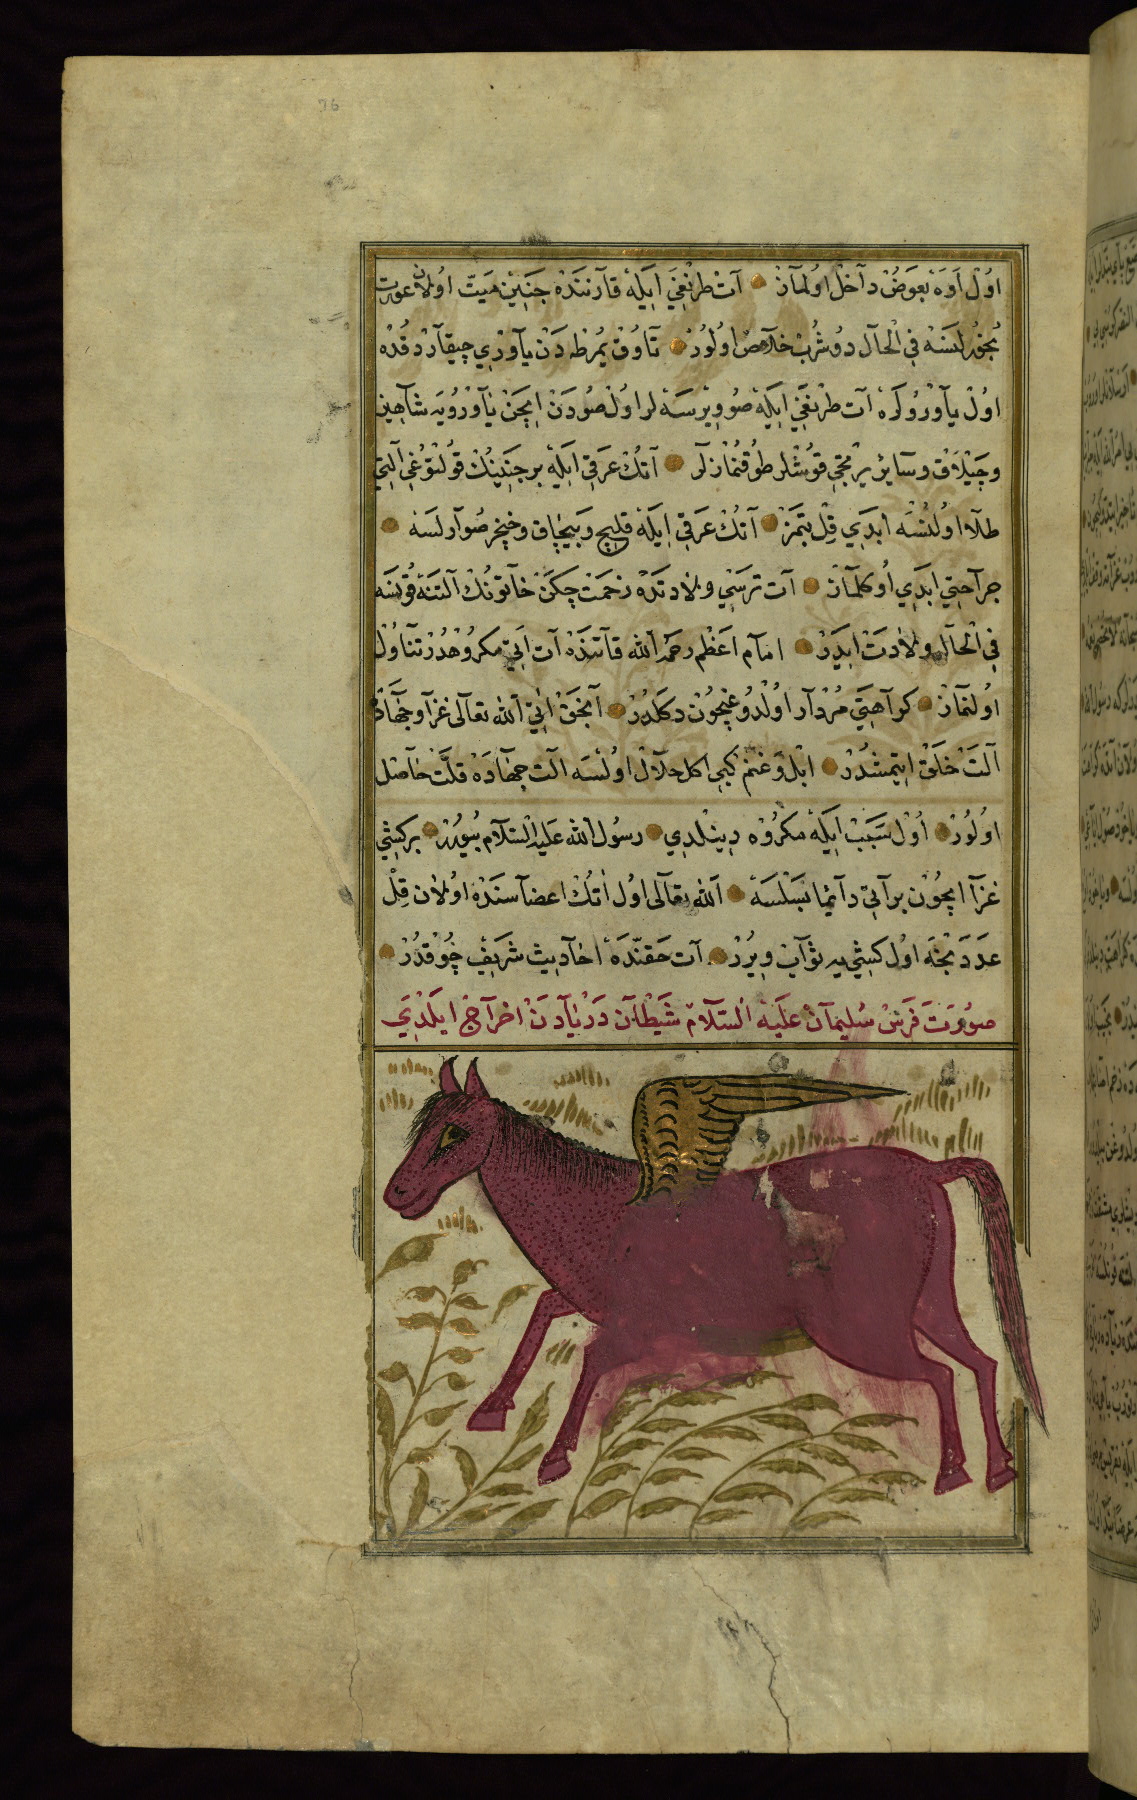 76
اول اوه بعوض داخل اولماز آت طرنغی ایله قارننده جنین میت اولان عورت
بخور لنسه فی الحال دوشرب خلاص اولور تاوق یمرطه دن یاوری چیقاردقده
اول یاورولره آت طرنغی ایله صو ویرسه لر اول صودن ایچن یاورویه شاهین
وچیلاق وسایر یرتجی قوشلر طوقنمازلر آتك عرقی ایله بر جنینك قولتوغی التی
طلا اولنسه ابدی قل بتمز آتك عرقی ایله قلیج وبیچاق وخنجر صوارلسه
جراحتی ابدی اوكلماز آت ترسنی ولادتده زحمت چكن خاتونك آلتنه قونسه
فی الحال ولادت ایدر امام اعظم رحمه الله قاتنده آت اتی مكروهدر تناول
اولنماز كراهیتی مردار اولدوغیچون دكلدر آنجق انی الله تعالی غزا وجهاده
آلت خلق ایتمشدر ابل وغنم كبی اكل حلال اولنسه الت جهاده قلت حاصل
اولور اول سبب ایله مكروه دینلدی رسول الله علیه السلام بیورر بر كشی
غزا ایچون بر آتی دائما بسلسه الله تعالی اول اتك اعضاسنده اولان قل
عددنجه اول كشی یه ثواب ویرر آت حقنده احادیث شریف چوقدر
صورت فرس سلیمان علیه السلام شیطان دریادن اخراج ایلدی